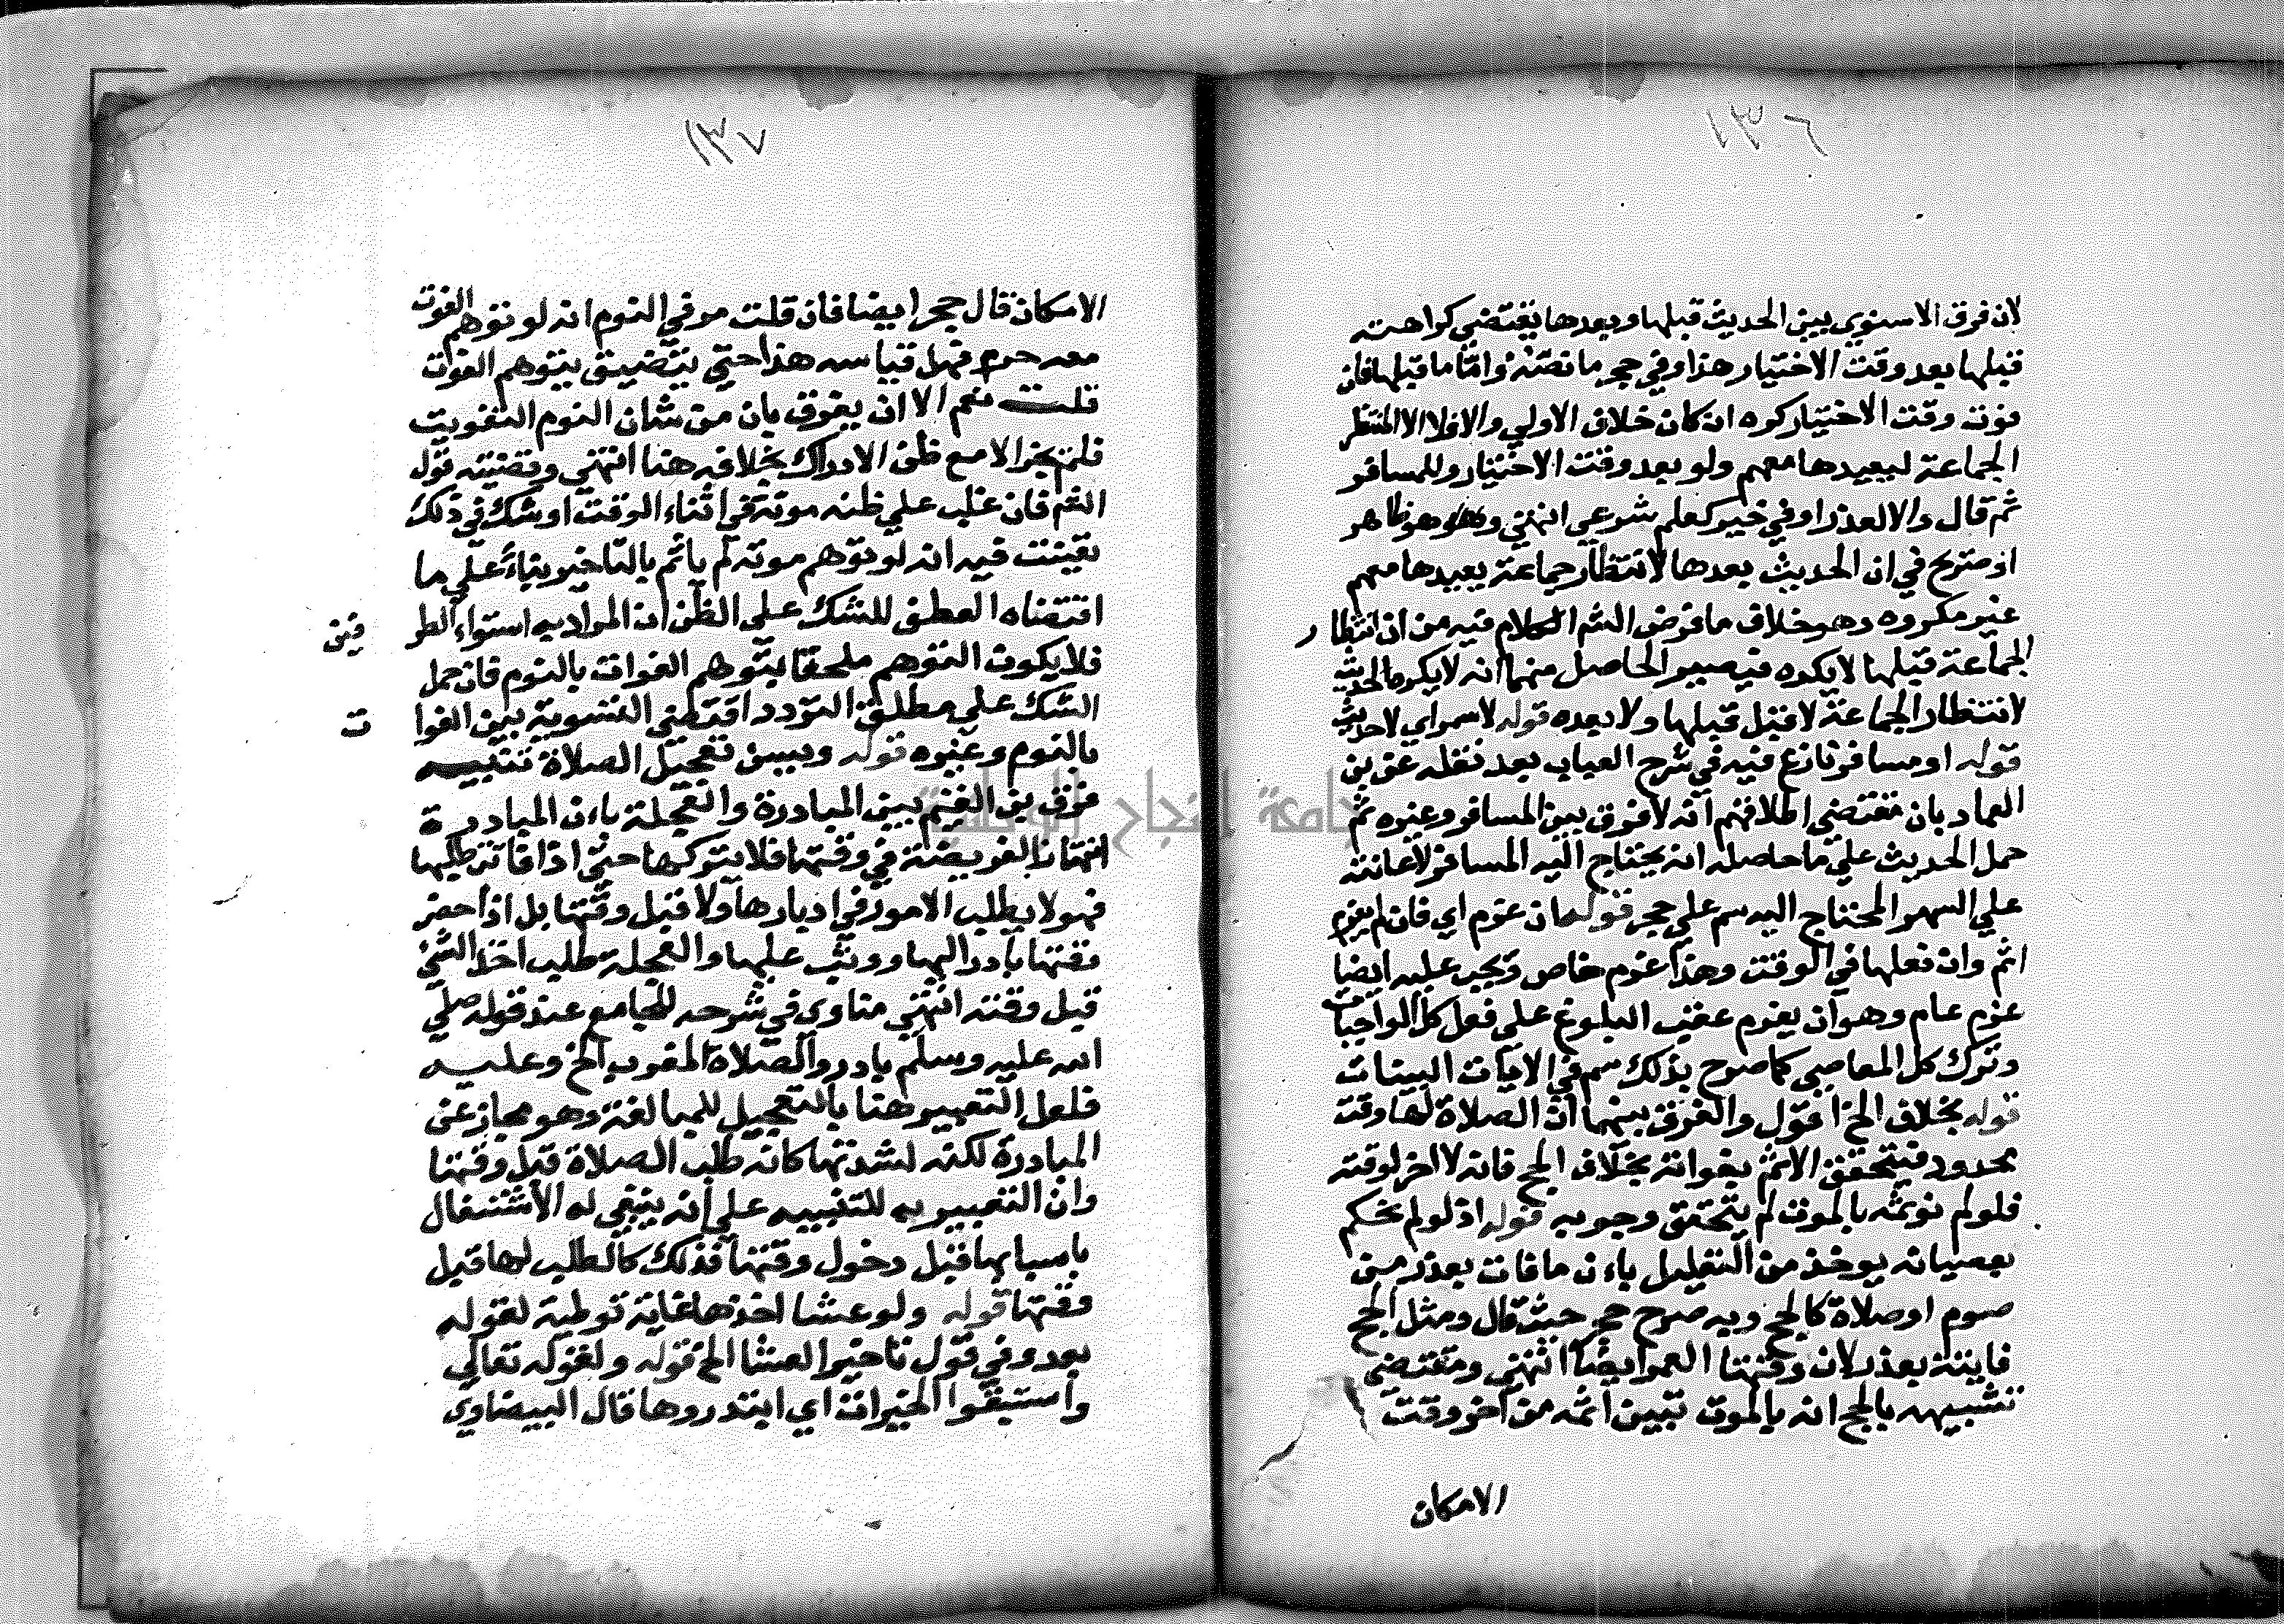 ١٣٦
لان فرق الاسنوي بين الحديث قبلها وبعدها يقتضي كراهته
قبلها بعد وقت الاختيار هذا وفي حجر ما نصه واما ما قبلها فان
فوت وقت الاختيار كره ان كان خلاف الاولي والا فلا الا لمنتظر
الجماعة ليعيدها معهم ولو بعد وقت الاختيار وللمسافر
ثم قال والا لعذر او في خير كعلم شرعي انتهي وهو ظاهر
اذ صريح في ان الحديث بعدها لانتظار جماعة يعيدها معهم
غير مكروه وهو خلاف ما فرض الشم الكلام فيه من ان انتظار
الجماعة قبلها لا يكره فيصير الحاصل منهما انه لا يكره الحديث
لانتظار الجماعة لا قبل قبلها ولا بعده قوله لاسمر اي لا حديث
قوله او مسافر نازع فيه في شرح العباب بعد نقله عن بن
العماد بان مقتضي اطلاقهم انه لا فرق بين المسافر وغيره ثم
حمل الحديث علي ما حاصله انه يحتاج اليه المسافر لاعانته
علي السهر المحتاج اليه سم علي حجر قوله ان عزم اي فان لم يعزم
اثم وان فعلها في الوقت وهذا عزم خاص ويجب عليه ايضا
عزم عام وهو ان يعزم عقب البلوغ علي فعل كل الواجبات
وترك كل المعاصي كما صرح بذلك سم في الايات البينات
قوله بخلاف الحج اقول والفرق بينهما ان الصلاة لها وقت
محدود فيتحقق الاثم بفواته بخلاف الحج فانه لا اخر لوقته
فلو لم نؤثمه بالموت لم يتحقق وجوبه قوله اذ لو لم نحكم
بعصيانه يوخذ من التعليل باءن ما فات بعذر من
صوم او صلاة كالحج وبه صرح حجر حيث قال ومثل الحج
فايتة بعذر لان وقتها العمر ايضا انتهي ومقتضي
تشبيهه بالحج انه بالموت تبين اثمه من اخر وقت
الامكان
١٣٧
الامكان قال حجر ايضا فان قلت مر في النوم انه لو توهم الفوت
معه حرم فهل قياسه هذا حتي يتضيق بتوهم الفوت
قلت نعم الا ان يفرق بان من شان النوم التفويت
فلم يجز الا مع ظن الادراك بخلافه هنا انتهي وقضيته قول
الشم فان غلب علي ظنه موته في اثناء الوقت او شك في ذلك
تعينت فيه انه لو توهم موته لم ياثم بالتاخير بناء علي ما
اقتضاه العطف للشك علي الظن ان المراد به استواء الطر
فين
فلا يكون التوهم ملحقا بتوهم الفوات بالنوم فان حمل
الشك علي مطلق التردد اقتضي التسوية بين الفوا
ت
بالنوم وغيره قوله ويسن تعجيل الصلاة تنبيه
فرق بن القيم بين المبادرة والعجلة باءن المبادرة
انتهاز الفريضة في وقتها فلا يتركها حتي اذا فاتت طلبها
فهو لا يطلب الامور في ادبارها ولا قبل وقتها بل اذا حضر
وقتها بادر اليها ووثب عليها والعجلة طلب اخذ الشئ
قبل وقته انتهي مناوي في شرحه للجامع عند قوله صلي
الله عليه وسلم بادروا لصلاة المغرب الخ وعليه
فلعل التعبير هنا بالتعجيل للمبالغة وهو مجاز عن
المبادرة لكنه لشدتها كانه طلب الصلاة قبل وقتها
وان التعبير به للتنبيه علي انه ينبغي له الاشتغال
باسبابها قبل دخول وقتها فذلك كالطلب لها قبل
وقتها قوله ولو عشا اخذ هاغاية توطية لقوله
بعد وفي قول تاخير العشا الخ قوله ولقوله تعالي
واستبقوا الخيرات اي ابتدروها قال البيضاوي
جامعة النجاح الوطنية